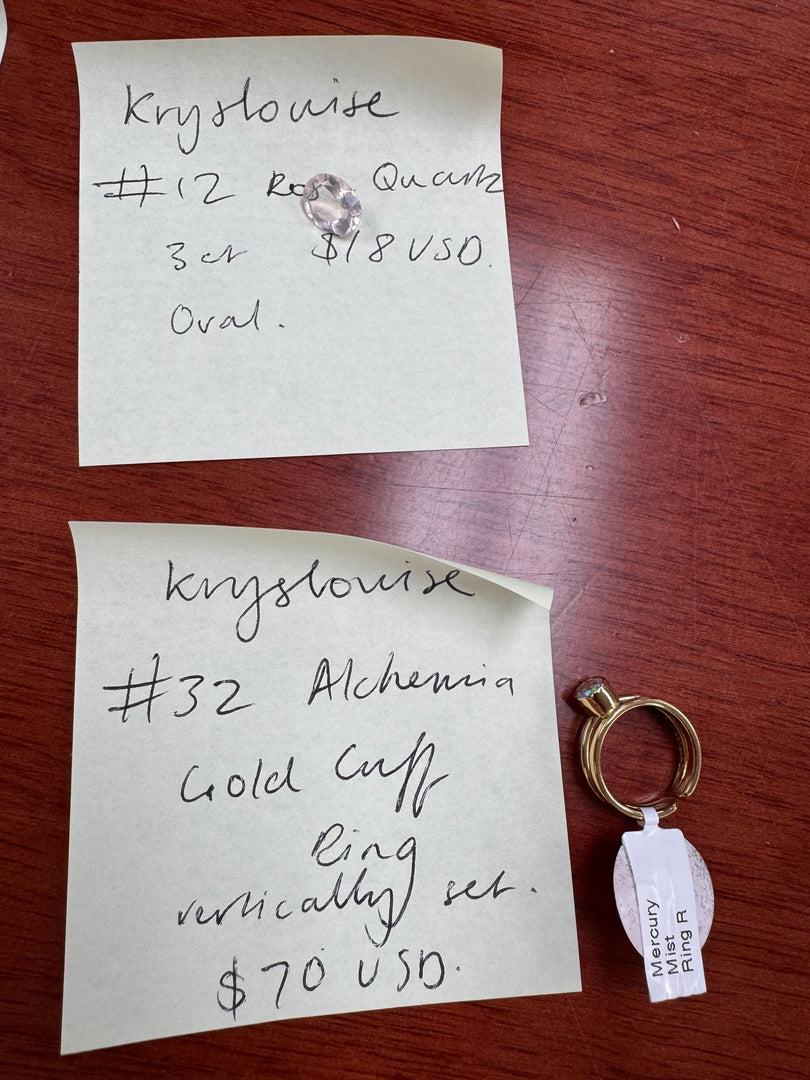 Kryslouise
#12 Ros Quartz
3 ct $18 USD.
Oval.
Kryslouise
#32 Alchemia
Gold Cuff
Ring
vertically set.
$70 USD.
Mercury
Mist
Ring R